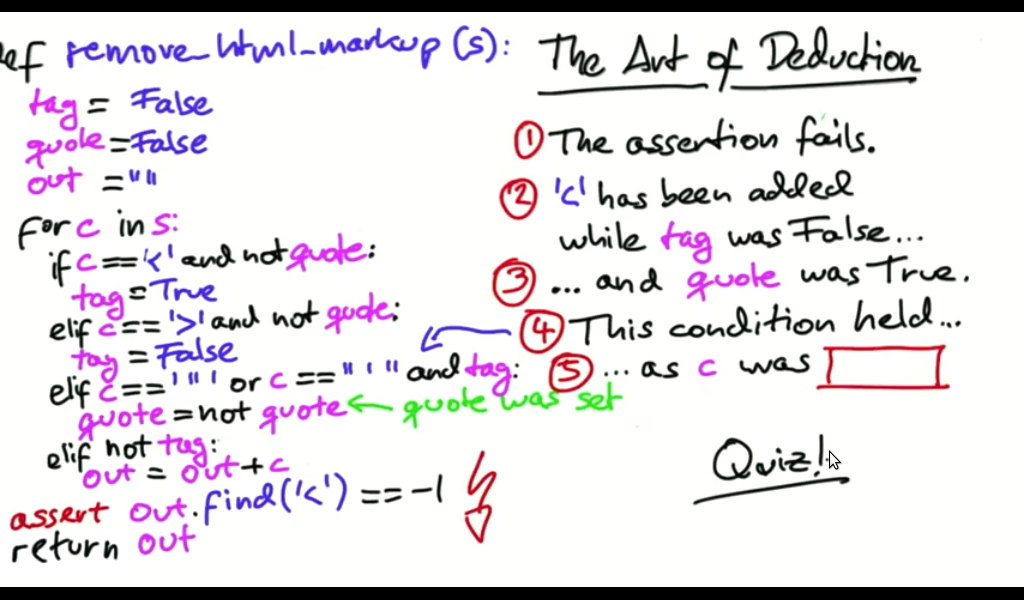 ef remove_html_markup (s):
tag = False
quote = False
out = ""
for c in s:
if c == '<' and not quote:
tag = True
elif c == '>' and not quote:
tag = False
elif c == '"' or c == "'" and tag:
quote = not quote ← quote was set
elif not tag:
out = out + c
assert out.find('<') == -1
return out
The Art of Deduction
① The assertion fails.
② '<' has been added
while tag was False...
③ ... and quote was True.
④ This condition held...
⑤ ... as c was
Quiz!